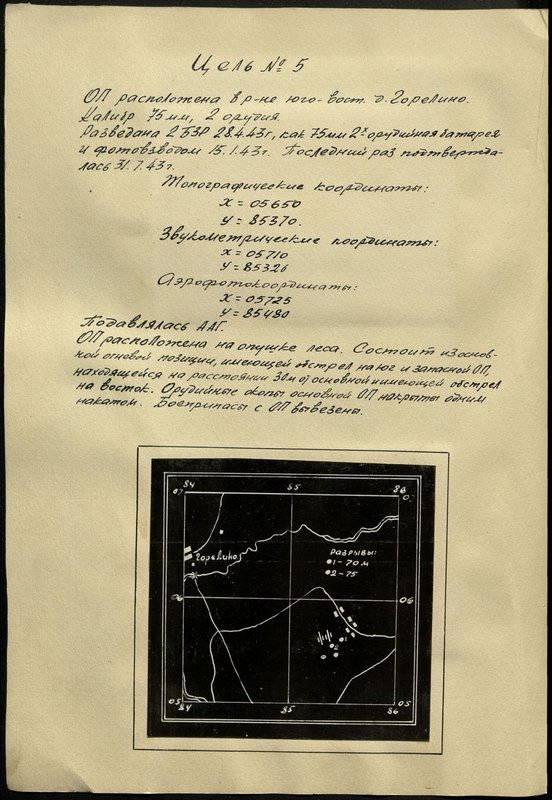 Цель № 5
ОП расположена в р-не юго-вост. д. Горелино.
Калибр 75 мм, 2 орудия.
Разведана 2 БЗР 28.4.43г, как 75мм 2х орудийная батарея
и фотовзводом 15.1.43г. Последний раз подтвержда-
лась 31.7.43г.
Топографические координаты:
X = 05650
У = 85370.
Звукометрические координаты:
X = 05710
У = 85326
Аэрофотокоординаты:
X = 05725
У = 85480
Подавлялась ААГ.
ОП расположена на опушке леса. Состоит из основ-
ной огневой позиции, имеющей обстрел на юг и запасной ОП,
находящейся на расстоянии 30м от основной и имеющей обстрел
на восток. Орудийные окопы основной ОП накрыты одним
накатом. Боеприпасы с ОП вывезены.
84 85 86
07 07
Горелино
Разрывы:
1-70 м
2-75
06 06
1
2
05 05
84 85 86